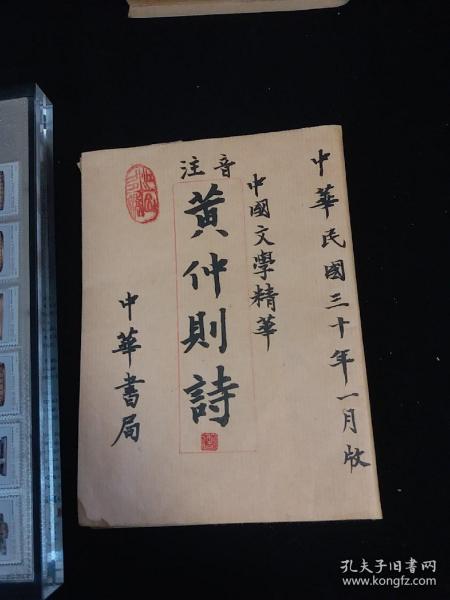 中華民國三十年一月版
中國文學精華
音注
黃仲則詩
中華書局
孔夫子旧书网
www.kongfz.com